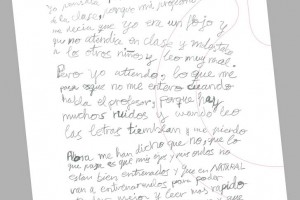 Yo pensaba
de la clase, porque mi profesora
me decia que yo era un flojo y
que no atendia en clase y molestaba
a los otros niños y leo muy mal.
Pero yo atiendo, lo que me
pasa es que no me entero cuando
habla el profesor, porque hay
muchos ruidos y cuando leo
las letras tiemblan y me pierdo
Ahora me han dicho que no, que lo
que pasa es que mis ojos y mis oidos no
estan bien entrenados y que en
van a entrenarmelos para poder
mejor y leer mas rapido